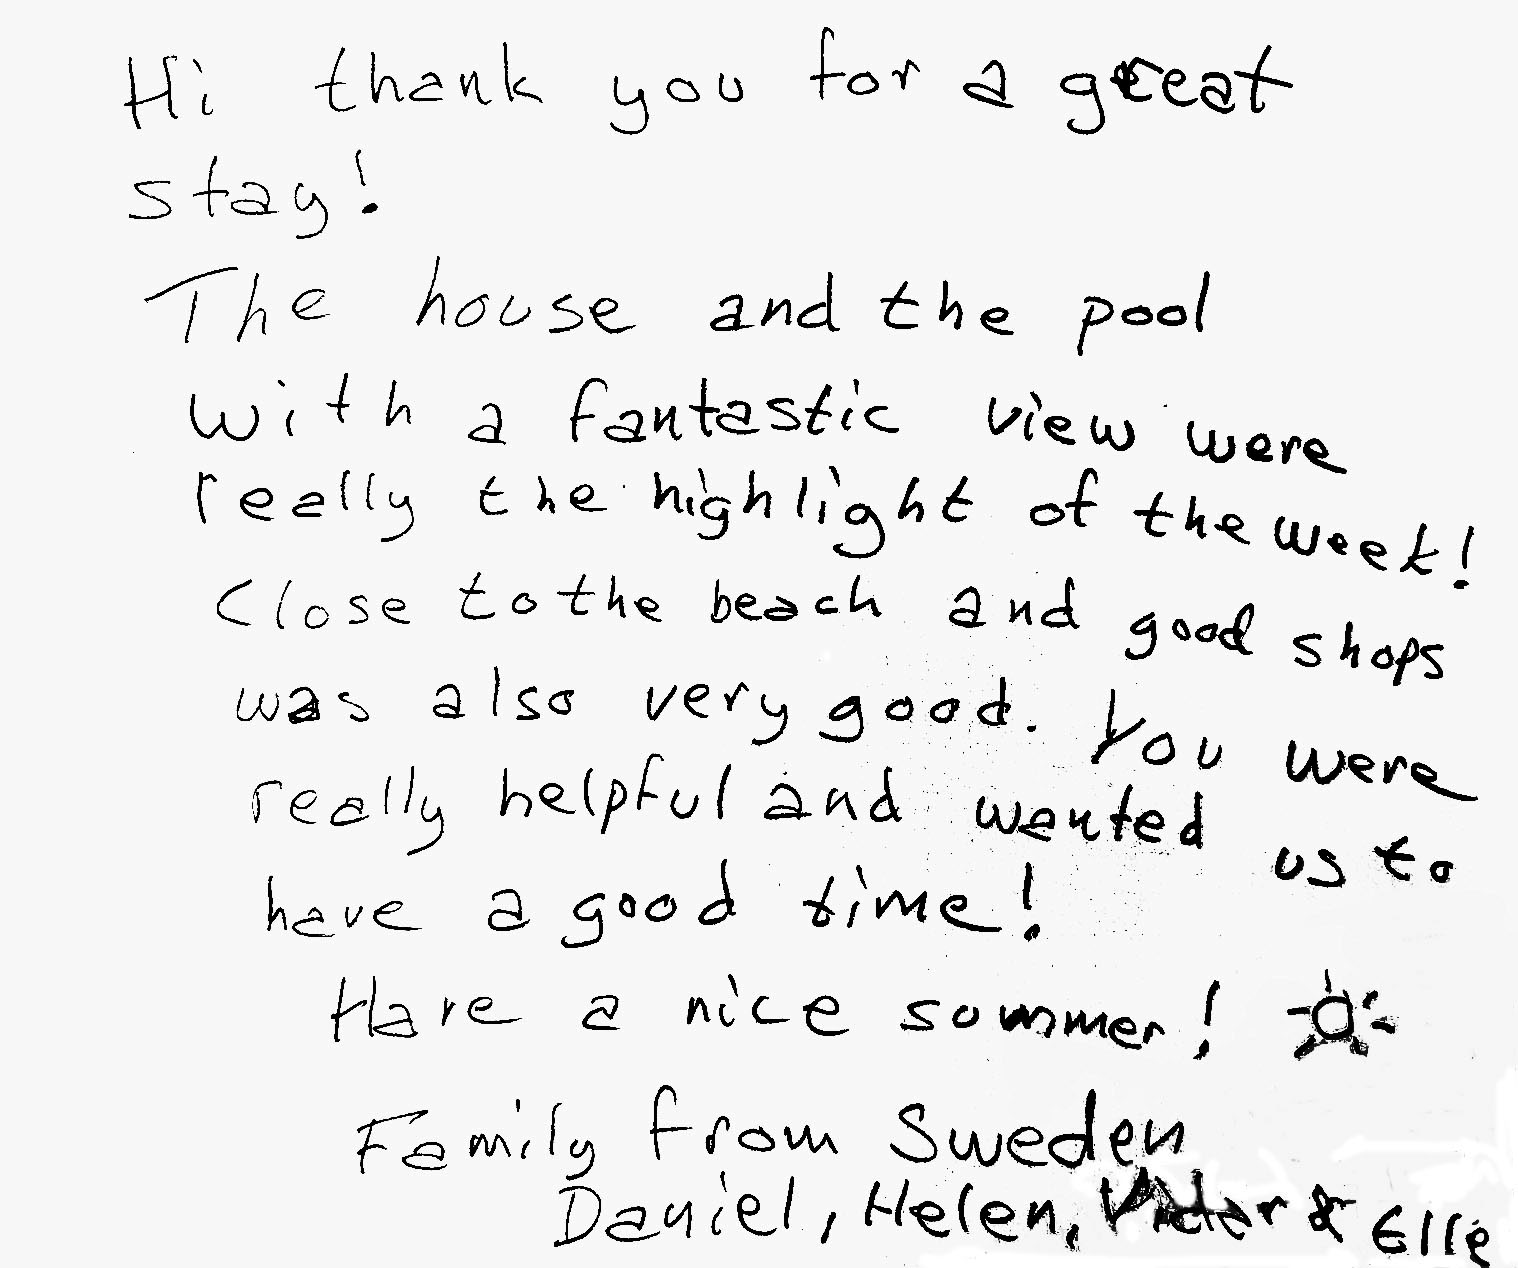 Hi thank you for a great
stay!
The house and the pool
with a fantastic view were
really the highlight of the week!
Close to the beach and good shops
was also very good. You were
really helpful and wanted us to
have a good time!
Have a nice sommer!
Family from Sweden
Daniel, Helen, & Elle